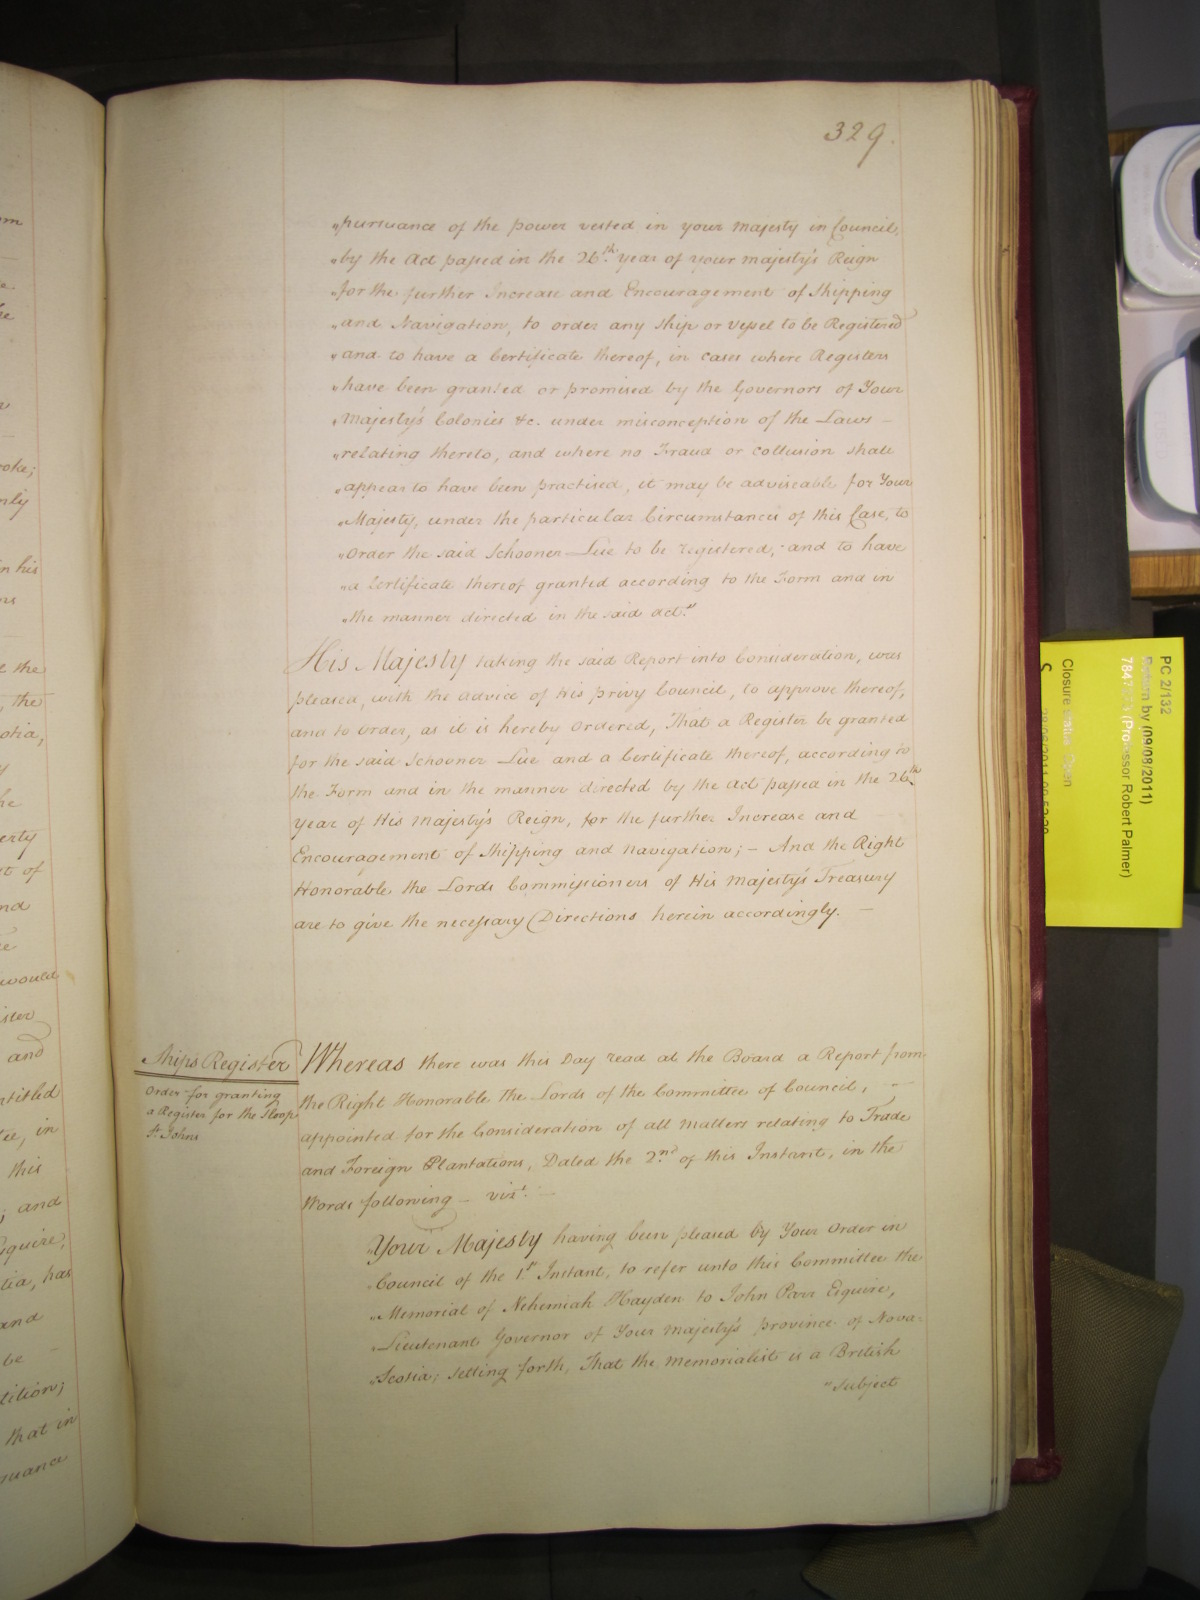 329.
"pursuance of the power vested in your Majesty in Council,
"by the Act passed in the 26th year of your Majesty's Reign
"for the further Increase and Encouragement of Shipping
"and Navigation, to order any Ship or Vessel to be Registered
"and to have a Certificate thereof, in cases where Registers
"have been granted or promised by the Governors of Your
"Majesty's Colonies &c. under misconception of the Laws
"relating thereto, and where no Fraud or collusion shall
"appear to have been practised, it may be adviseable for Your
"Majesty, under the particular Circumstances of this Case, to
"order the said Schooner Lue to be registered, and to have
"a Certificate thereof granted according to the Form and in
"the manner directed in the said Act."
His Majesty taking the said Report into Consideration, was
pleased, with the advice of his privy Council, to approve thereof,
and to Order, as it is hereby Ordered, That a Register be granted
for the said Schooner Lue and a Certificate thereof, according to
the Form and in the manner directed by the Act passed in the 26th
year of His Majesty's Reign, for the further Increase and
Encouragement of Shipping and Navigation; – And the Right
Honorable the Lords Commissioners of His Majesty's Treasury
are to give the necessary Directions herein accordingly. –
Ships Register
Order for granting
a Register for the Sloop
St. Johns
Whereas there was this Day read at the Board a Report from
the Right Honorable the Lords of the Committee of Council,
appointed for the Consideration of all matters relating to Trade
and Foreign Plantations, Dated the 2nd of this Instant, in the
Words following – vizt. –
"Your Majesty having been pleased by Your Order in
"Council of the 1st Instant, to refer unto this Committee the
"Memorial of Nehemiah Hayden to John Parr Esquire,
"Lieutenant Governor of Your Majesty's province of Nova
"Scotia; setting forth, That the Memorialist is a British
"Subject
PC 2/132
Return by (09/08/2011)
(Professor Robert Palmer)
Closure status Open